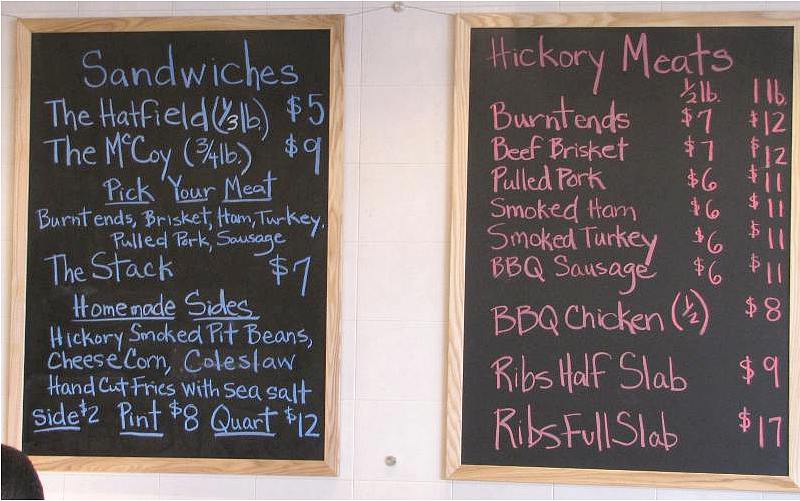 Sandwiches
The Hatfield (1/3 lb.) $5
The McCoy (3/4 lb.) $9
Pick Your Meat
Burnt ends, Brisket, Ham, Turkey,
Pulled Pork, Sausage
The Stack $7
Homemade Sides
Hickory Smoked Pit Beans,
Cheese Corn, Coleslaw
Hand Cut Fries with sea salt
side $2 Pint $8 Quart $12
Hickory Meats
1/2 lb. 1 lb.
Burnt ends $7 $12
Beef Brisket $7 $12
Pulled Pork $6 $11
Smoked Ham $6 $11
Smoked Turkey $6 $11
BBQ Sausage $6 $11
BBQ Chicken (1/2) $8
Ribs Half Slab $9
Ribs Full Slab $17